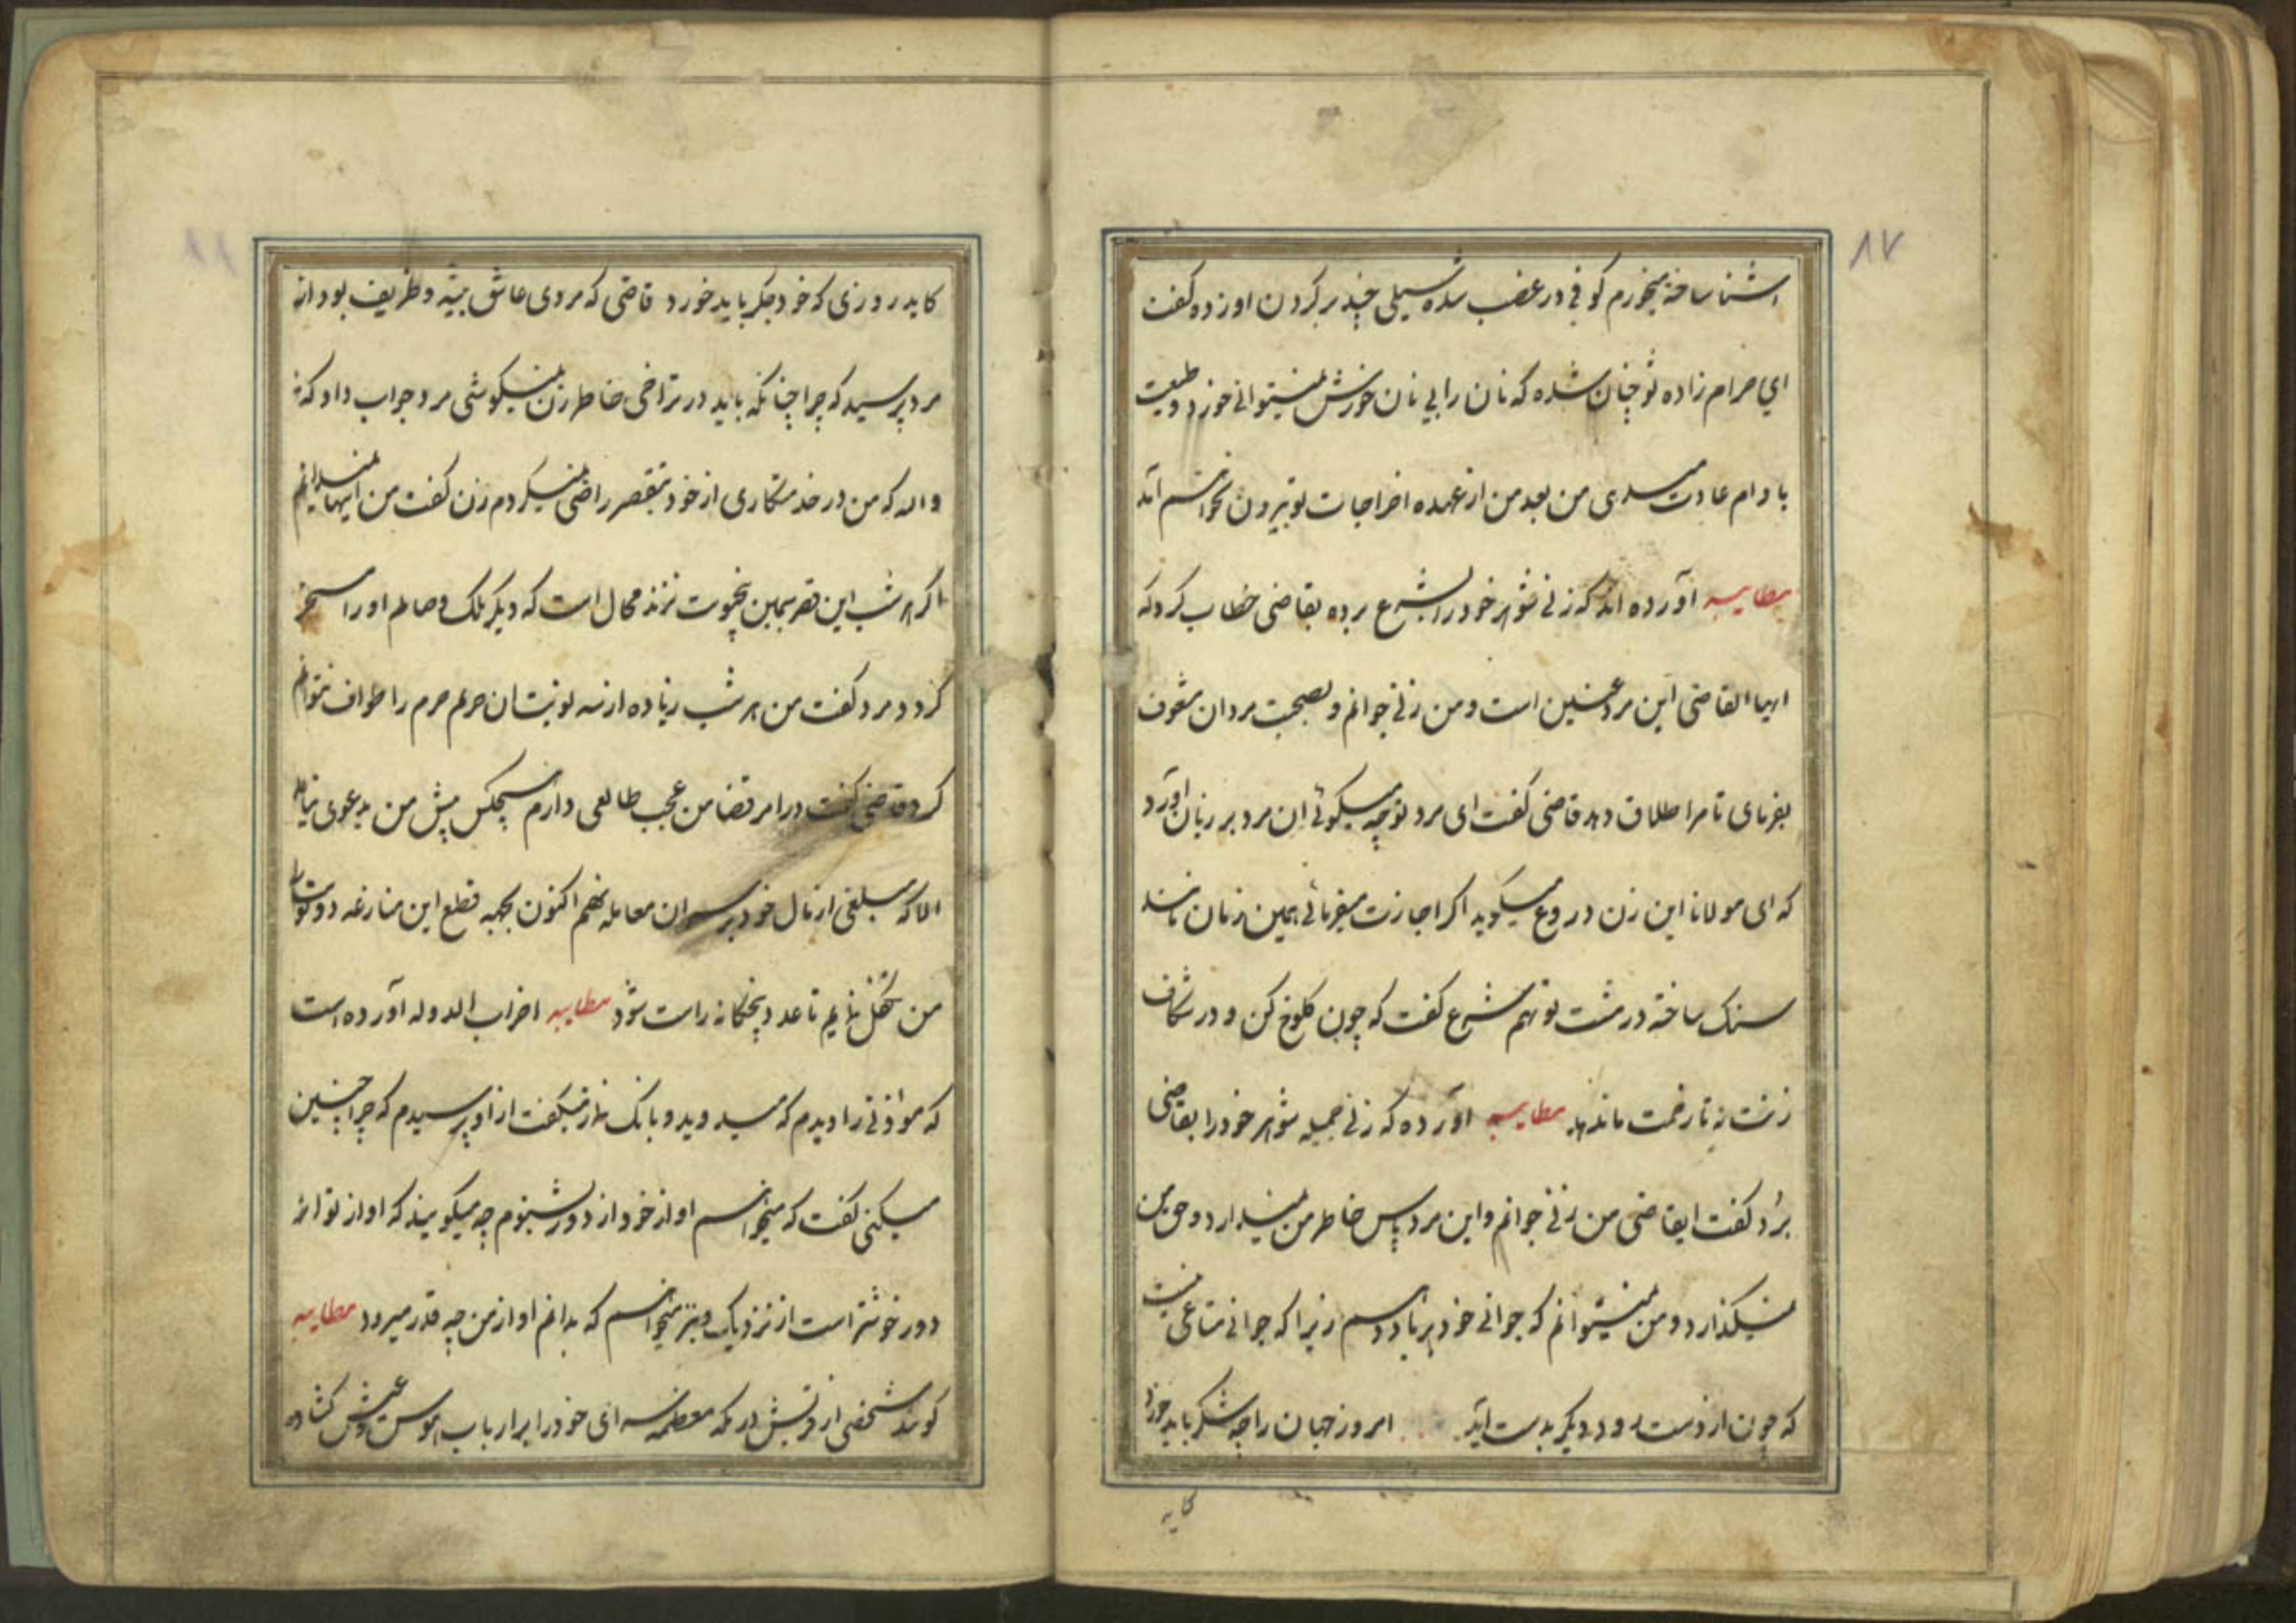 ۸۷
اشنا ساخته میخورم کوفی در غضب شده سیلی چند بر کردن او زده کفت
ای حرام زاده تو چنان شده که نان را بی نان خورش نمیتوانی خورد و طبیعت
با دام عادت میدی من بعد من از عهده اخراجات تو بیرون نخواهم آمد
مطایبه آورده اند که زنی شوهر خود را بشرع برده بقاضی خطاب کرد که
ایها القاضی این مرد عنین است و من زنی جوانم و بصحبت مردان مشعوف
بفرمای تا مرا طلاق دهد قاضی کفت ای مرد تو چه میکوئی ان مرد بر زبان آورد
که ای مولانا این زن دروغ میکوید اکر اجازت میفرمائی همین زمان مانند
سنک ساخته در مشت تو نهم شرع کفت که چون کلوخ کن و در شکاف
زنت نه تا زحمت ماندهد مطایبه آورده که زنی جمیله شوهر خود را بقاضی
برد کفت ایقاضی من زنی جوانم و این مرد پاس خاطر من نمیدارد و حق من
نمیکذارد و من نمیتوانم که جوانی خود بر باد دهم زیرا که جوانی متاعی نیست
که چون از دست رود دیکر بدست آید امروز جهان را چه شکر باید خورد
کاید
کاید روزی که خود جکر باید خورد قاضی که مردی عاشق پیشه و ظریف بود از
مرد پرسید که چرا چنانکه باید در تراضی خاطر زن نمیکوشی مرد جواب داد که
والله که من در خدمتکاری از خود بتقصیر راضی نمیکردم زن کفت من اینها نمیدانم
اکر هر شب این قصر سیمین پنج نوبت نزند محال است که دیکر ملک وصالم او را مسخر
کردد مرد کفت من هر شب زیاده از سه نوبت ان حریم حرم را طواف نتوانم
کرد قاضی کفت در امر قضا من عجب طالعی دارم هیچکس پیش من بدعوی نیامد
الا که مبلغی از مال خود بر سر ان معامله نهم اکنون بجهه قطع این منازعه دو نوبت را
من تکفل نمایم تا عدد پنجکانه راست شود مطایبه اضراب الدوله آورده است
که موذنی را دیدم که میدوید و بانک نماز میکفت از او پرسیدم که چرا چنین
میکنی کفت که میخواهم اواز خود از دور بشنوم چه میکویند که اواز تو از
دور خوشتر است از نزدیک و نیز میخواهم که بدانم اواز من چه قدر میرود مطایبه
کویند شخصی از قریش در مکه معظمه سرای خود را بر ارباب هوس و عیش کشاده